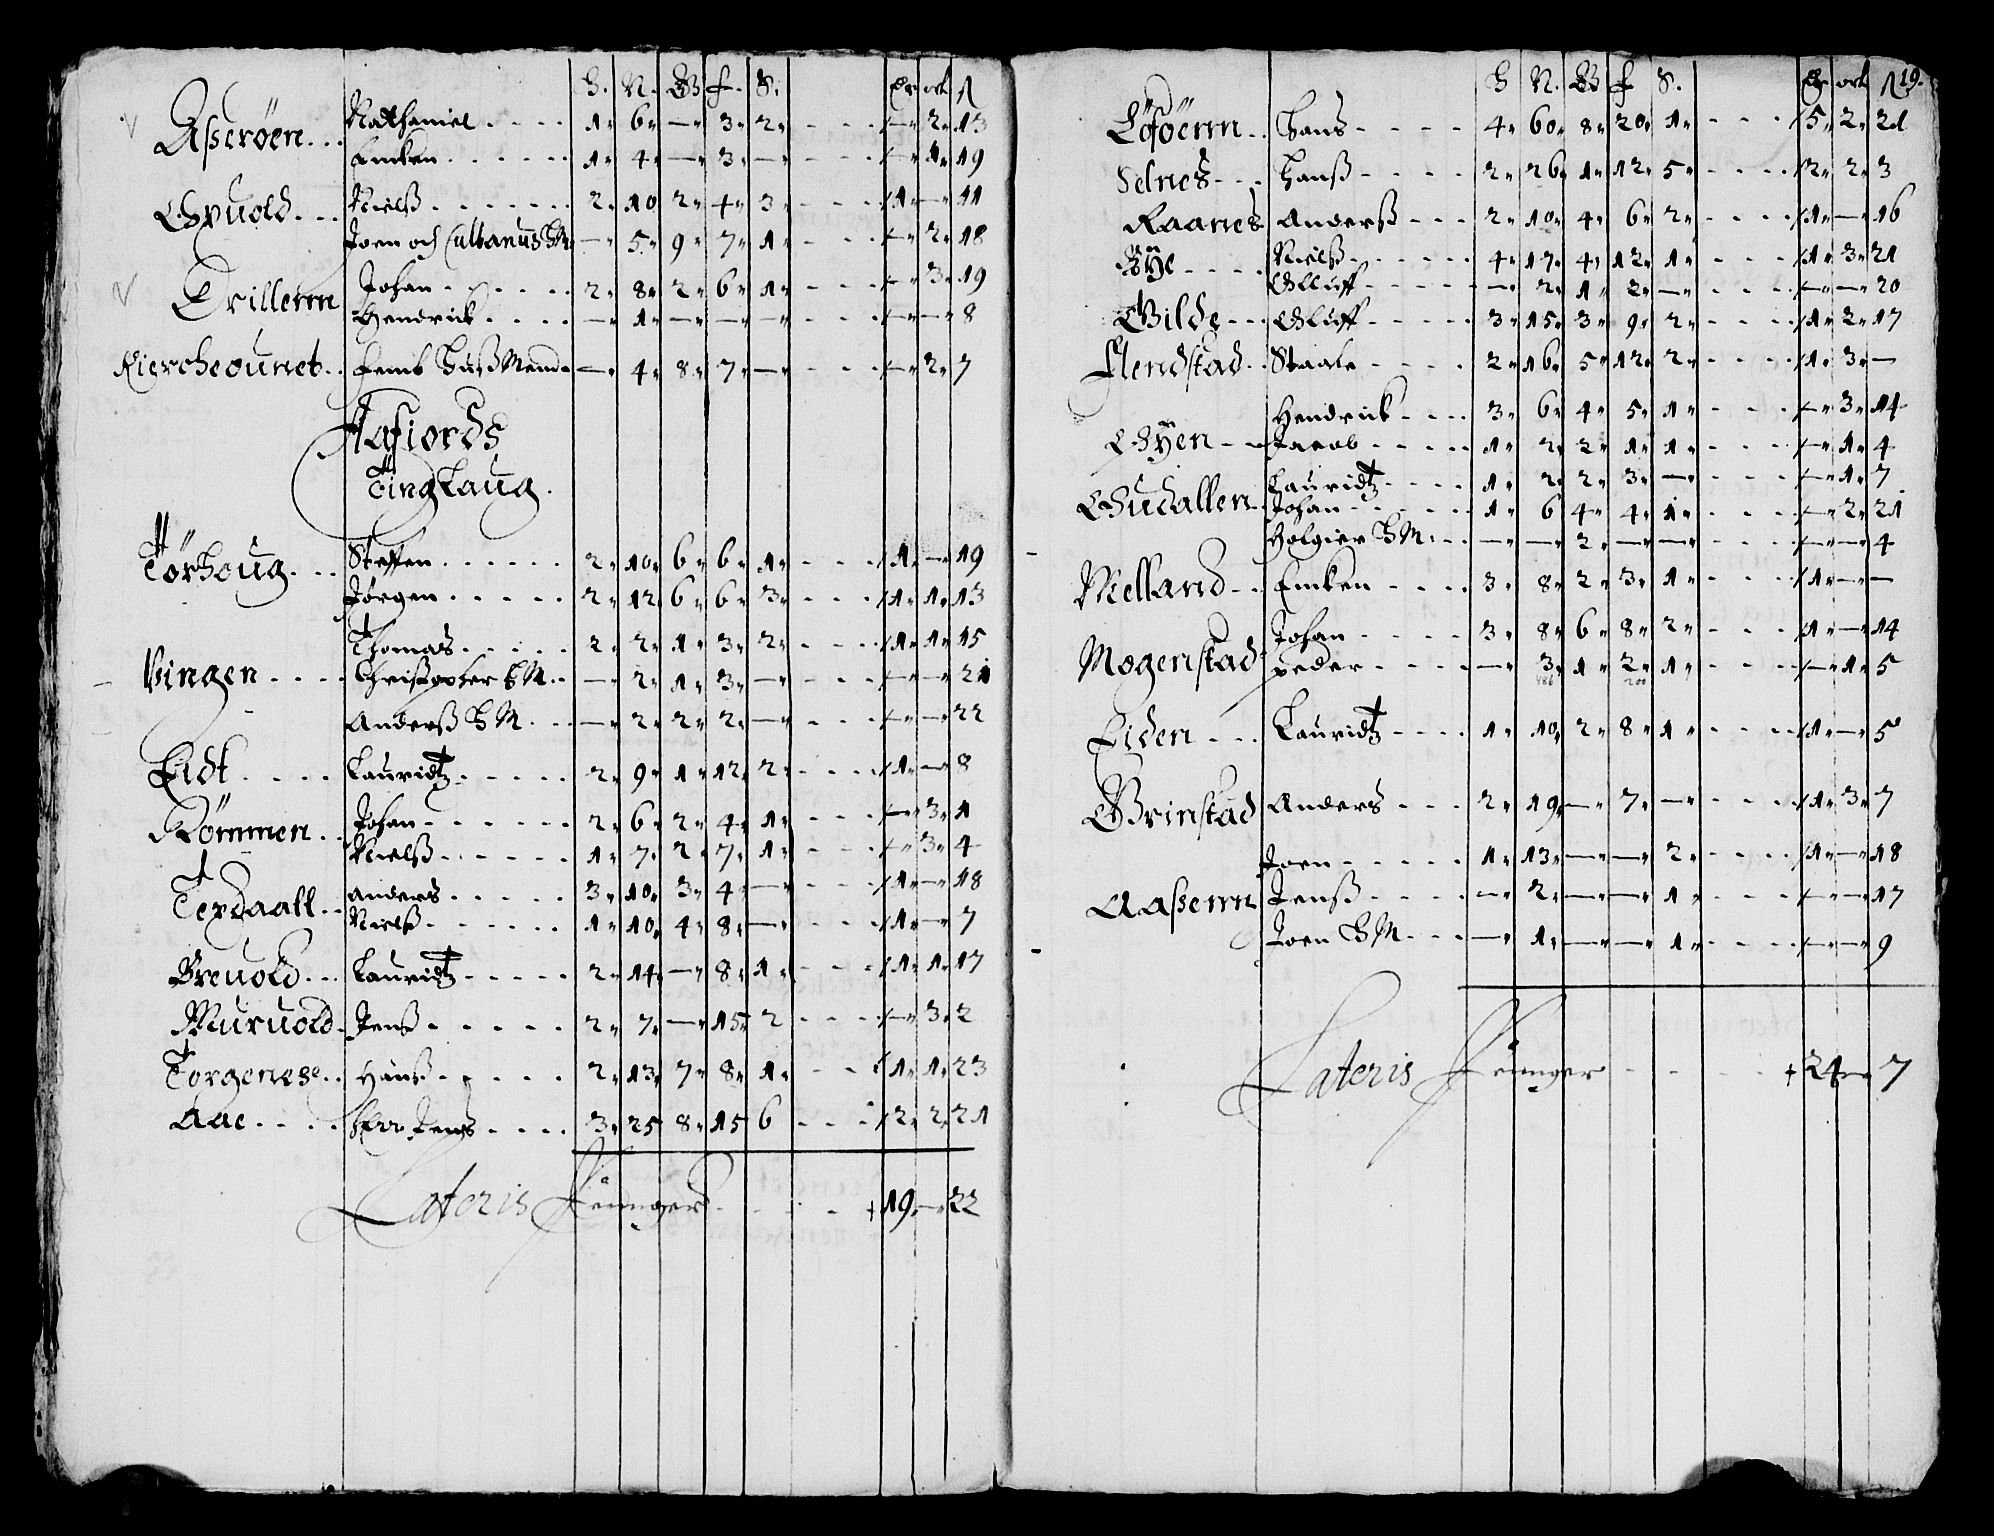 H. N. G f. S. Dr ort ß
Aßerøen... Nathaniel .... 1 6 — 3 2 — 2 13
Emken ...... 1 4 — 3 — — 1 19
Opuold... Nielß ....... 2 10 2 4 3 1 — 11
Joen och Cultanus HM — 5 9 7 1 — 2 18
Trillernn Johan ...... 2 8 2 6 1 — 3 19
Hendrick .... — 1 — — — — — 8
Kiercheounet.. — 4 8 7 — — 3 7
Aafiords
TingLaug.
Tørhoug... Steffen ...... 2 10 6 6 1 1 — 19
Jørgen ..... 2 12 6 6 3 1 1 13
Thomas ..... 2 2 1 3 2 1 1 15
Vingen .... Christopher HM.. — 2 1 3 — — — 21
Anderß HM... — 2 2 2 — — — 22
Eidt .... Lauridtz ..... 2 9 1 12 2 1 — 8
Kømmen.. Johan ...... 2 6 2 4 1 — 3 1
Nielß ...... 1 7 2 7 1 — 3 4
Terdaall.. anders ..... 3 10 3 4 — 1 — 18
Nielß ...... 1 10 4 8 — 1 — 7
Breuold... Lauridtz ..... 2 14 — 8 1 1 1 17
Muruold. Jenß ..... 2 7 — 15 2 — 3 2
Torgenese.. Hanß ..... 2 13 7 8 1 1 1 23
Aae .... Herr Jens .... 3 25 8 15 6 2 2 21
Lateris Penger ..... 19 — 22
H N. G f S. Dr ort ß 19.
Løføernn.. Hans .... 4 60 8 20 1 5 2 21
Selnes... Hanß .... 2 26 1 12 5 2 2 3
Raanes Anderß ... 2 10 4 6 2 1 — 16
Bÿe .... Nielß ..... 4 17 4 12 1 1 3 21
Olluff ..... — 2 1 2 — — — 20
Gilde... Oluff ..... 3 15 3 9 2 1 2 17
Flendstad.. Staale .... 2 16 5 12 2 1 3 —
Hendrick ... 3 6 4 5 1 — 3 14
Oÿen -- Jacob .... 1 2 2 1 1 — 1 4
Gudallen.. Lauridtz .... 1 2 2 3 — — 1 7
Johan ..... 1 6 4 4 1 — 2 21
Holgier HM: .. — — 2 — — — — 4
Melland.. Emken .... 3 8 2 3 1 1 — —
Mogenstad Johan .... 3 8 6 8 2 1 — 14
peder .... — 3 1 2 1 — 1 5
Eiden ... Lauridtz .... 1 10 2 8 1 1 — 5
Grinstad Anders ... 2 19 — 7 — 1 3 7
Joen ..... 1 13 — — 2 1 — 18
Aaßernn Jenß .... — 2 — — 1 — — 17
Joen HM ... — 1 — — 1 — — 9
Lateris Penger .... 24 — 7